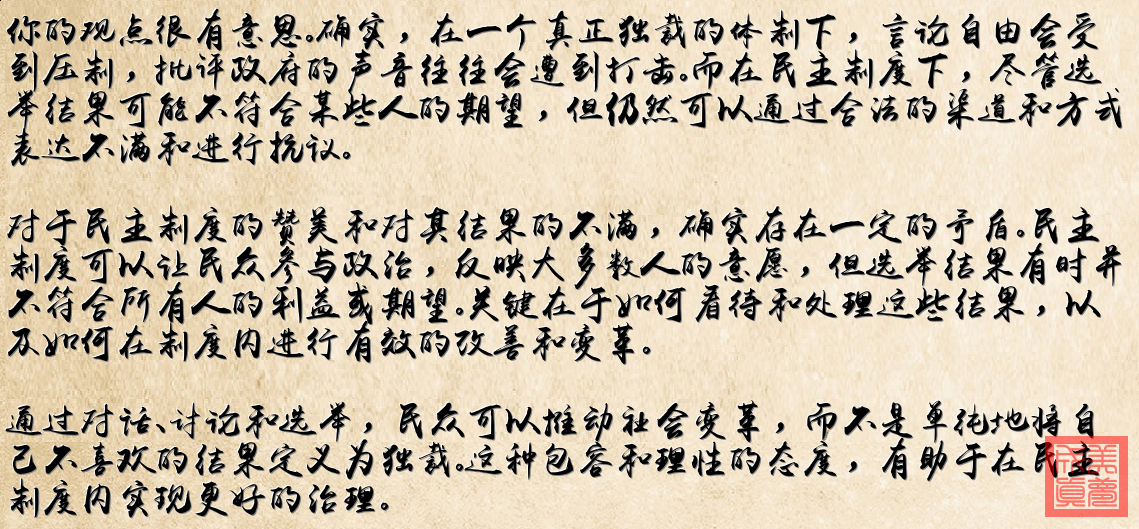 你的观点很有意思。确实，在一个真正独裁的体制下，言论自由会受
到压制，批评政府的声音往往会遭到打击。而在民主制度下，尽管选
举结果可能不符合某些人的期望，但仍然可以通过合法的渠道和方式
表达不满和进行抗议。
对于民主制度的赞美和对其结果的不满，确实存在一定的矛盾。民主
制度可以让民众参与政治，反映大多数人的意愿，但选举结果有时并
不符合所有人的利益或期望。关键在于如何看待和处理这些结果，以
及如何在制度内进行有效的改善和变革。
通过对话、讨论和选举，民众可以推动社会变革，而不是单纯地将自
己不喜欢的结果定义为独裁。这种包容和理性的态度，有助于在民主
制度内实现更好的治理。
美夢成真